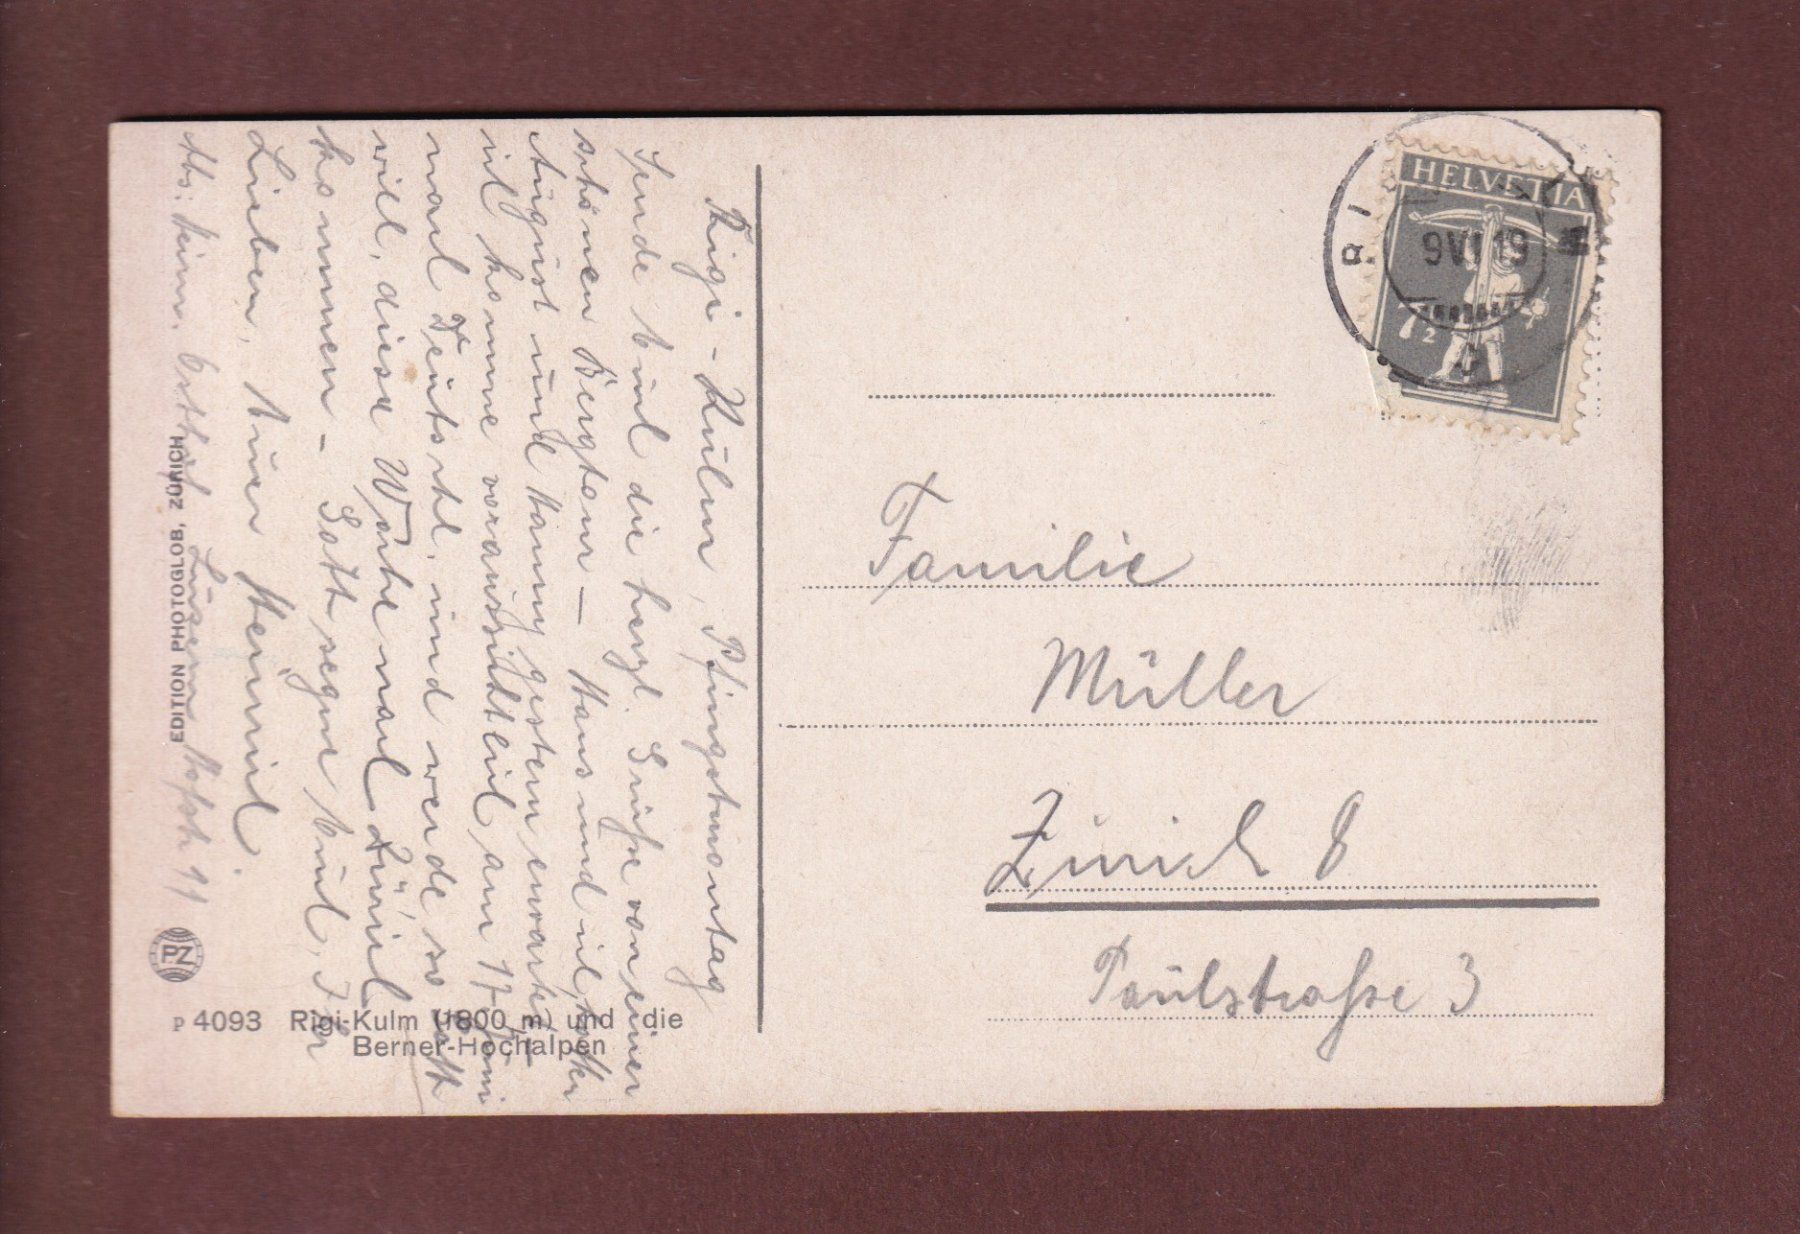 Rigi-Kulm, Pfingstmontag
Sende Euch die herzl. Grüße von einer
schönen Bergtour — Hans und ich, hatten
August und Fanny gestern erwartet —
ich komme voraussichtlich am 17 Juni
nach Deutschl. und werde so Gott
will, diese Woche nach Zürich
kommen - Gott segne Euch, Ihr
Lieben, Euer Heinrich.
Abs: Heinr. Luzern 11
EDITION PHOTOGLOB, ZÜRICH
PZ
P 4093 Rigi-Kulm (1800 m) und die
Berner-Hochalpen
HELVETIA
RIGI
9 VI 19
7½
Familie
Müller
Zürich 8
Paulstraße 3